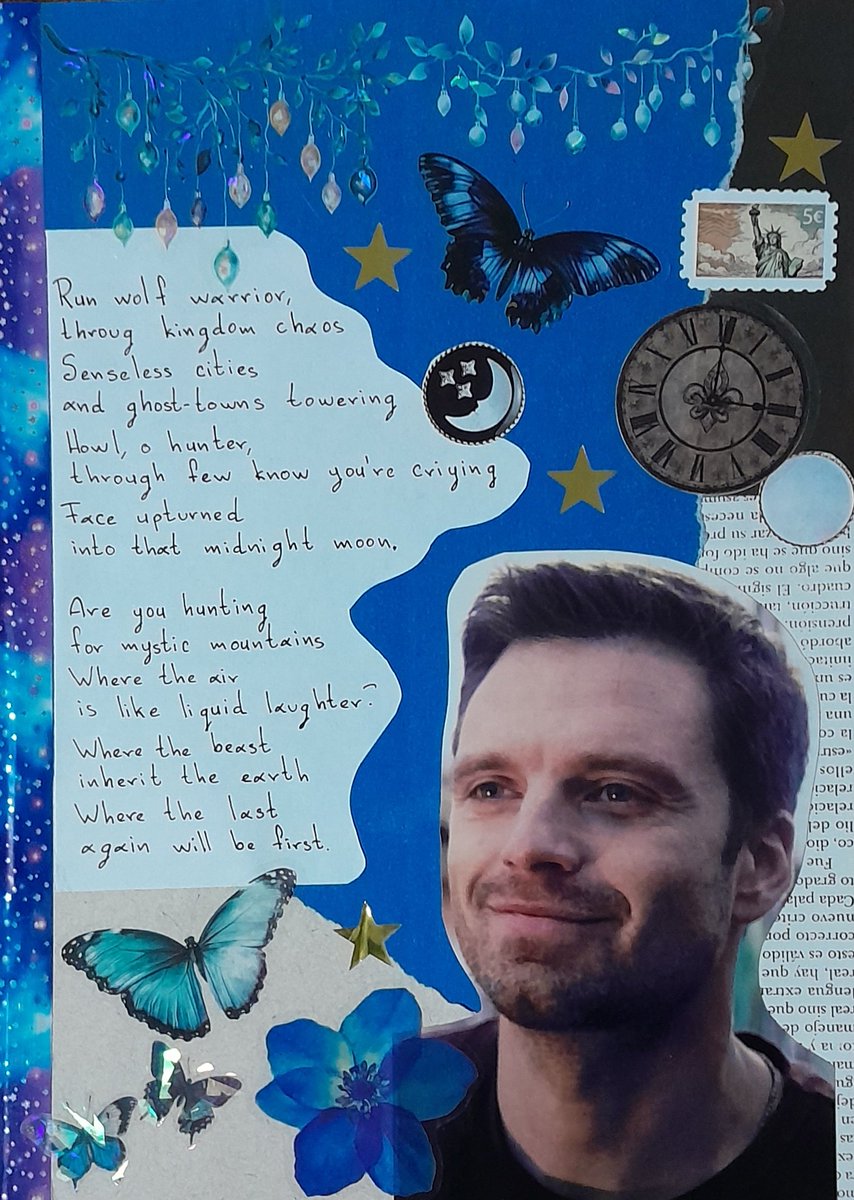 5€
Run wolf warrior,
throug kingdom chaos
Senseless cities
and ghost-towns towering
Howl, o hunter,
through few know you're criying
Face upturned
into that midnight moon.
Are you hunting
for mystic mountains
Where the air
is like liquid laughter?
Where the beast
inherit the earth
Where the last
again will be first.
manejo de
real sino que
lengua
real, hay que
esto es válido
correcto por
nuevo
Cada
grado
Fue
dio
del
ellos
una
es un
abordó
prensión.
trucción,
cuadro. El
que algo no se
sino que se ha ido
su